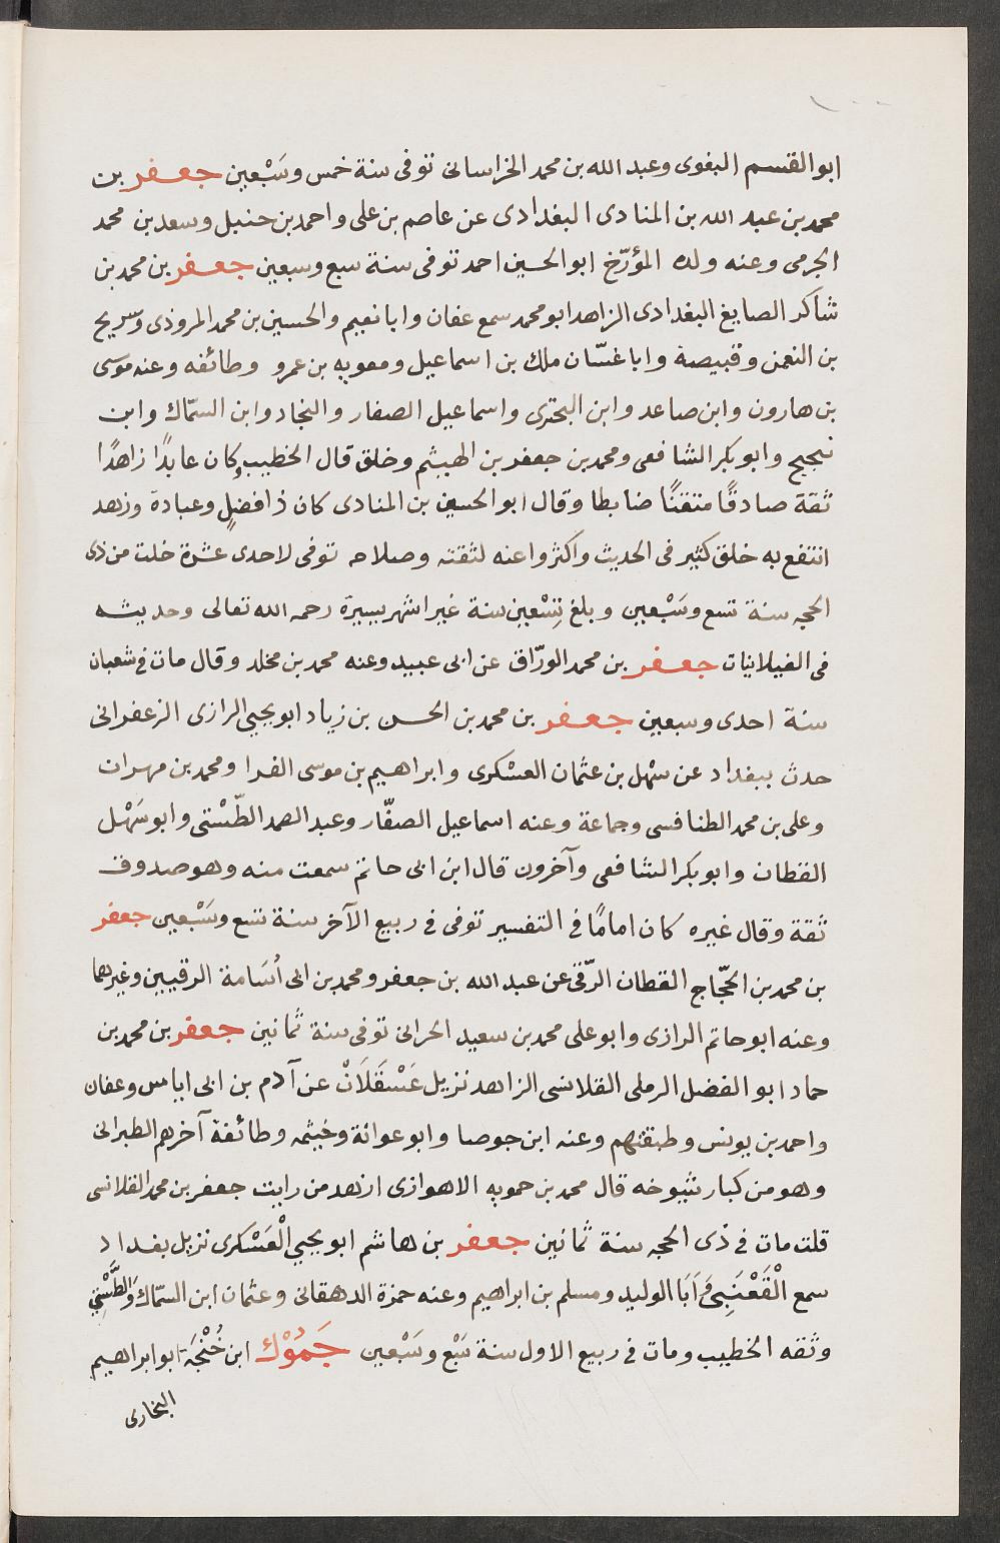 ابوالقسم البغوى وعبد الله بن محمد الخراسانى توفى سنة خمس وسَبْعين جعفر بن
محمد بن عبد الله بن المنادى البغدادى عن عاصم بن على واحمد بن حنبل وسعد بن محمد
الجرمى وعنه ولده المؤرّخ ابوالحسين احمد توفى سنة سبع وسبعين جعفر بن محمد بن
شاكر الصايغ البغدادى الزاهد ابو محمد سمع عفان وابا نعيم والحسين بن محمد المروذى وسريج
بن النعمن وقبيصة وابا غسّان ملك بن اسماعيل ومعويه بن عمرو وطائفه وعنه موسى
بن هارون وابن صاعد وابن البحترى واسماعيل الصفار والنجاد وابن السمّاك وابن
نجيح وابو بكر الشافعى ومحمد بن جعفر بن الهيثم وخلق قال الخطيب وكان عابدًا زاهدًا
ثقة صادقًا متقنًا ضابطا وقال ابو الحسين بن المنادى كان ذا فضلٍ وعبادة وزهد
انتفع به خلق كثير فى الحديث واكثروا عنه لثقته وصلاحه توفى لاحدى عشرة خلت من ذى
الحجه سنة تسع وسَبْعين وبلغ تِسْعين سنة غير اشهر يسيرة رحمه الله تعالى وحديثه
فى الغيلانيات جعفر بن محمد الورّاق عن ابى عبيد وعنه محمد بن مخلد وقال مات فى شعبان
سنة احدى وسبعين جعفر بن محمد بن الحسن بن زياد ابو يحيى الرازى الزعفرانى
حدث ببغداد عن سهْل بن عثمان العسْكرى وابراهيم بن موسى الفرا ومحمد بن مهران
وعلى بن محمد الطنافسى وجماعة وعنه اسماعيل الصفّار وعبد الصمد الطّسْتى وابو سَهْل
القطان وابو بكر الشافعى وآخرون قال ابن ابى حاتم سمعت منه وهو صدوق
ثقة وقال غيره كان امامًا فى التفسير توفى فى ربيع الآخر سنة تسع وسَبْعين جعفر
بن محمد بن الحجّاج القطان الرّقى عن عبد الله بن جعفر ومحمد بن ابى اُسَامة الرقيين وغيرهما
وعنه ابو حاتم الرازى وابو على محمد بن سعيد الحرانى توفى سنة ثمانين جعفر بن محمد بن
حماد ابو الفضل الرملى القلانسى الزاهد نزيل عَسْقَلَانْ عن آدم بن ابى اياس وعفان
واحمد بن يونس وطبقتهم وعنه ابن جوصا وابو عوانة وخيثمه وطائفة آخرهم الطبرانى
وهو من كبار شيوخه قال محمد بن حمويه الاهوازى ازهد من رايت جعفر بن محمد القلانسى
قلت مات فى ذى الحجه سنة ثمانين جعفر بن هاشم ابو يحيى الْعَسْكرى نزيل بغداد
سمع الْقَعْنَبِى وَاَبَا الوليد ومسلم بن ابراهيم وعنه حمزة الدهقانى وعثمان ابن السمّاك وَالطَّسْتِى
وثقه الخطيب ومات فى ربيع الاول سنة سَبْع وسَبْعين جَمُوْك ابن خُنْجَة ابو ابراهيم
البخارى